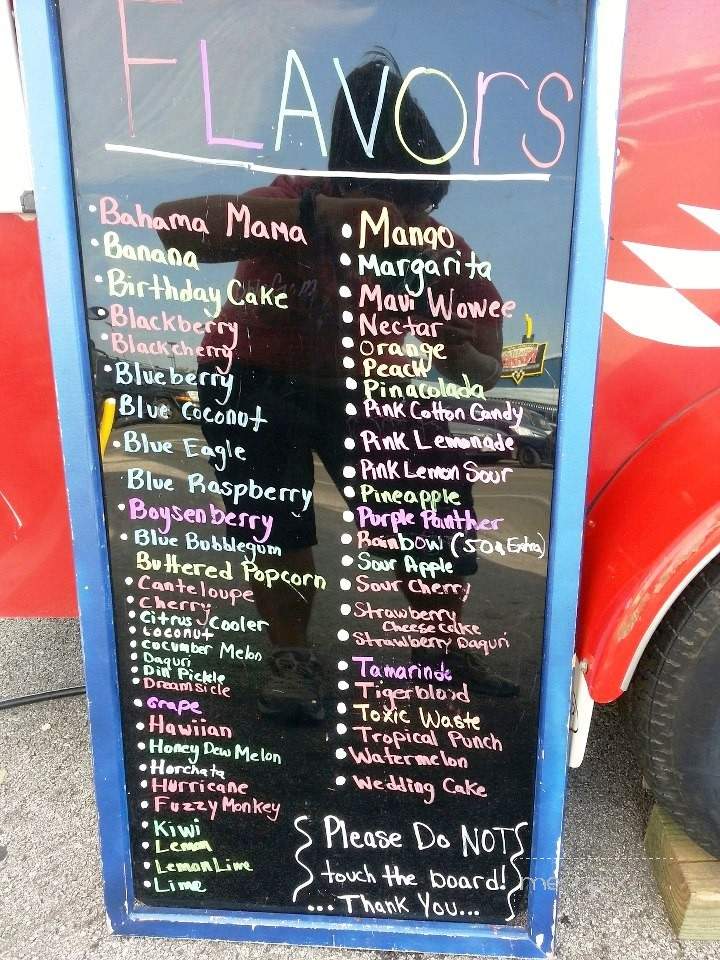 FLAVOrs
• Bahama Mama
• Banana
• Birthday Cake
• Blackberry
• Blackcherry
• Blueberry
Blue Coconut
• Blue Eagle
Blue Raspberry
• Boysenberry
• Blue Bubblegum
Buttered Popcorn
• Canteloupe
• Cherry
• Citrus Cooler
• Coconut
• Cocumber Melon
• Daquri
• Dill Pickle
• Dreamsicle
• Grape
• Hawiian
• Honey Dew Melon
• Horchata
• Hurricane
• Fuzzy Monkey
• Kiwi
• Lemon
• Lemon Lime
• Lime
• Mango
• Margarita
• Maui Wowee
• Nectar
• Orange
• Peach
• Pinacolada
• Pink Cotton Candy
• Pink Lemonade
• Pink Lemon Sour
• Pineapple
• Purple Panther
• Rainbow (50¢ Extra)
• Sour Apple
• Sour Cherry
• Strawberry
Cheese Cake
• Strawberry Daquri
• Tamarindo
• Tigerblood
• Toxic Waste
• Tropical Punch
• Watermelon
• Wedding Cake
Please Do NOT
touch the board!
... Thank You...